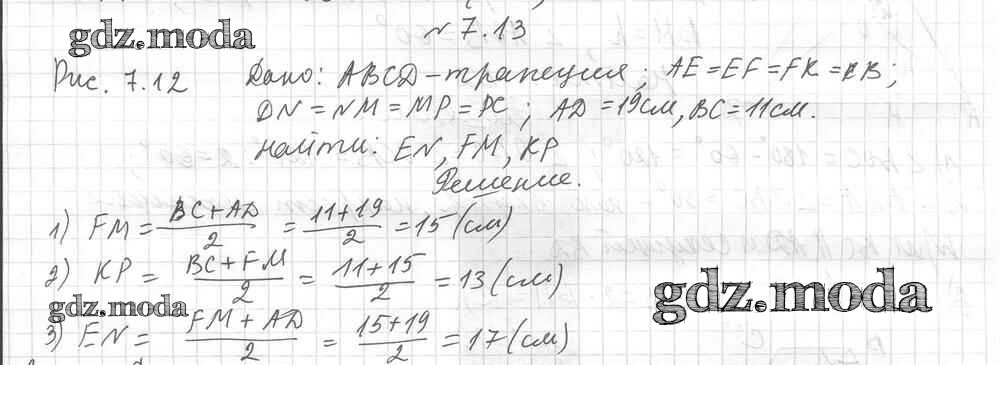 № 7.13
gdz.moda
Рис. 7.12 Дано: ABCD - трапеция; AE = EF = FK = KB;
DN = NM = MP = PC; AD = 19см, BC = 11см.
Найти: EN, FM, KP
Решение.
1) FM = \frac{BC + AD}{2} = \frac{11+19}{2} = 15 (см)
2) KP = \frac{BC + FM}{2} = \frac{11+15}{2} = 13 (см)
gdz.moda
gdz.moda
3) EN = \frac{FM + AD}{2} = \frac{15+19}{2} = 17 (см)